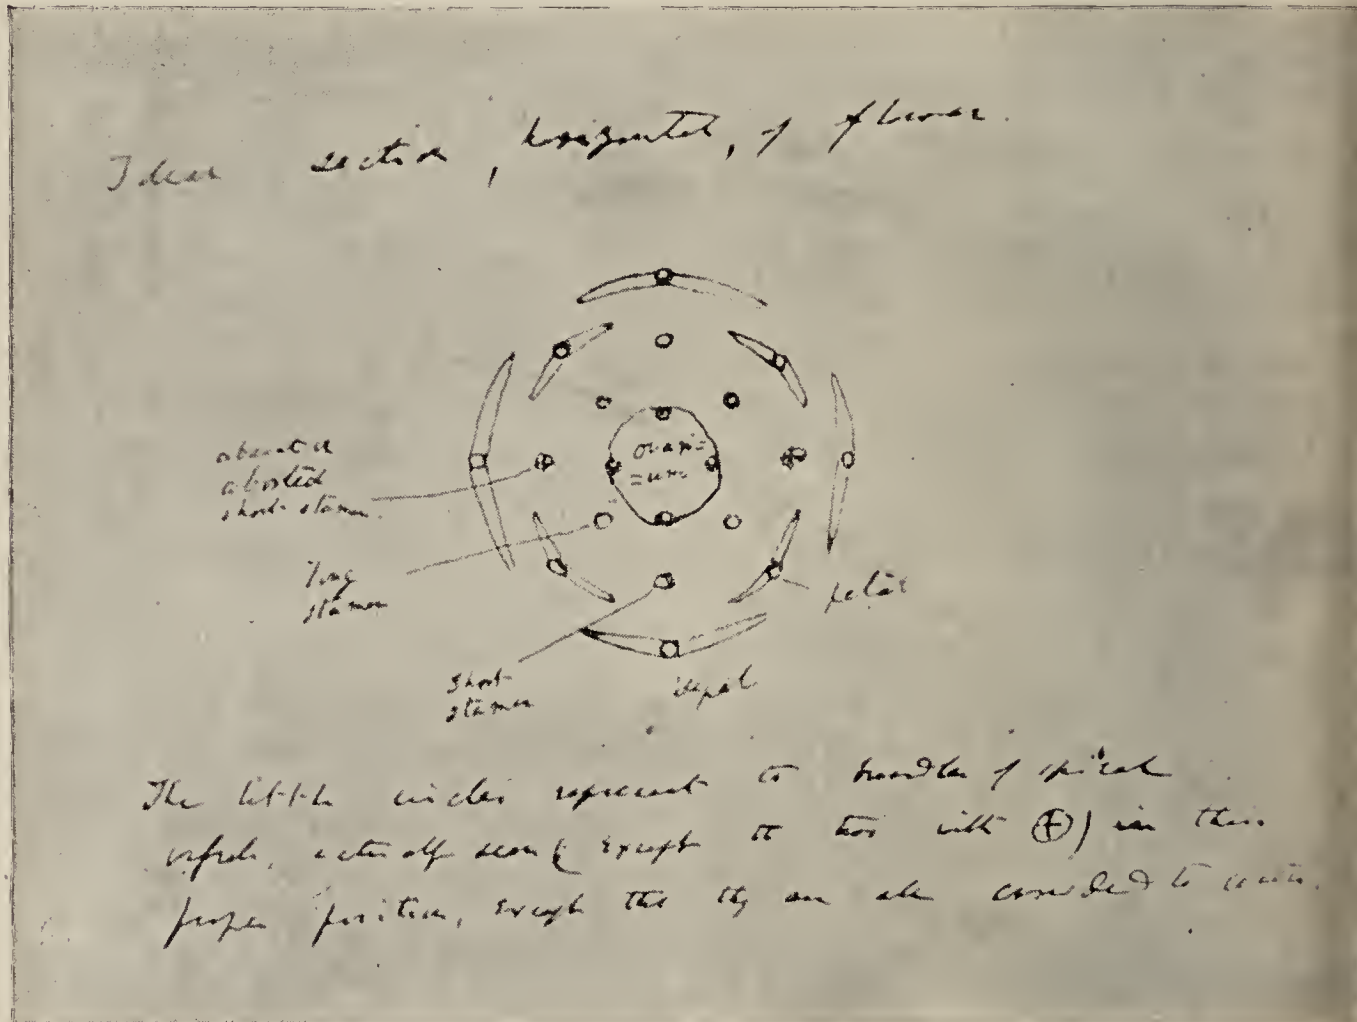 Ideal section, horizontal, of flower.
ovari=
=um
aborted
short-stamen
long
stamen
petal
short-
stamen
sepal
The little circles represent the bundles of spiral
vessels, actually seen (except the two with ⊕) in their
proper position, except that they are all crowded to centre.